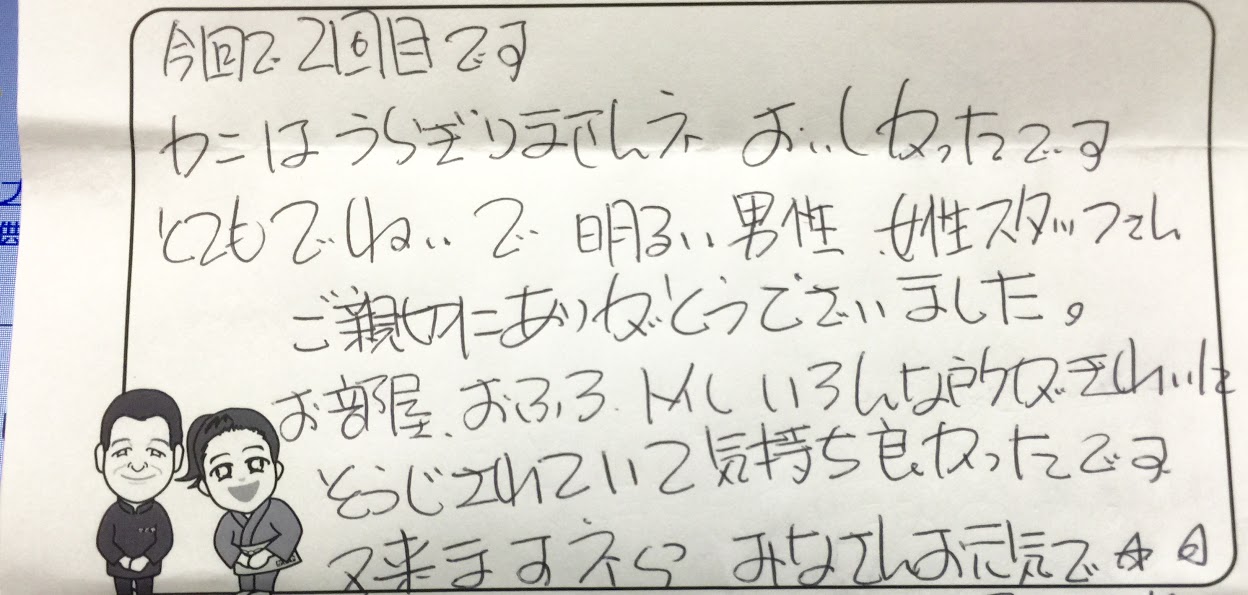 今回で2回目です
カニはうらぎりませんネ おいしかったです
とてもていねいで 明るい男性、女性スタッフさん
ご親切にありがとうございました。
お部屋、おふろ、トイレ いろんな所がきれいに
そうじされていて気持ち良かったです
又来ますネ みなさんお元気で☆
供